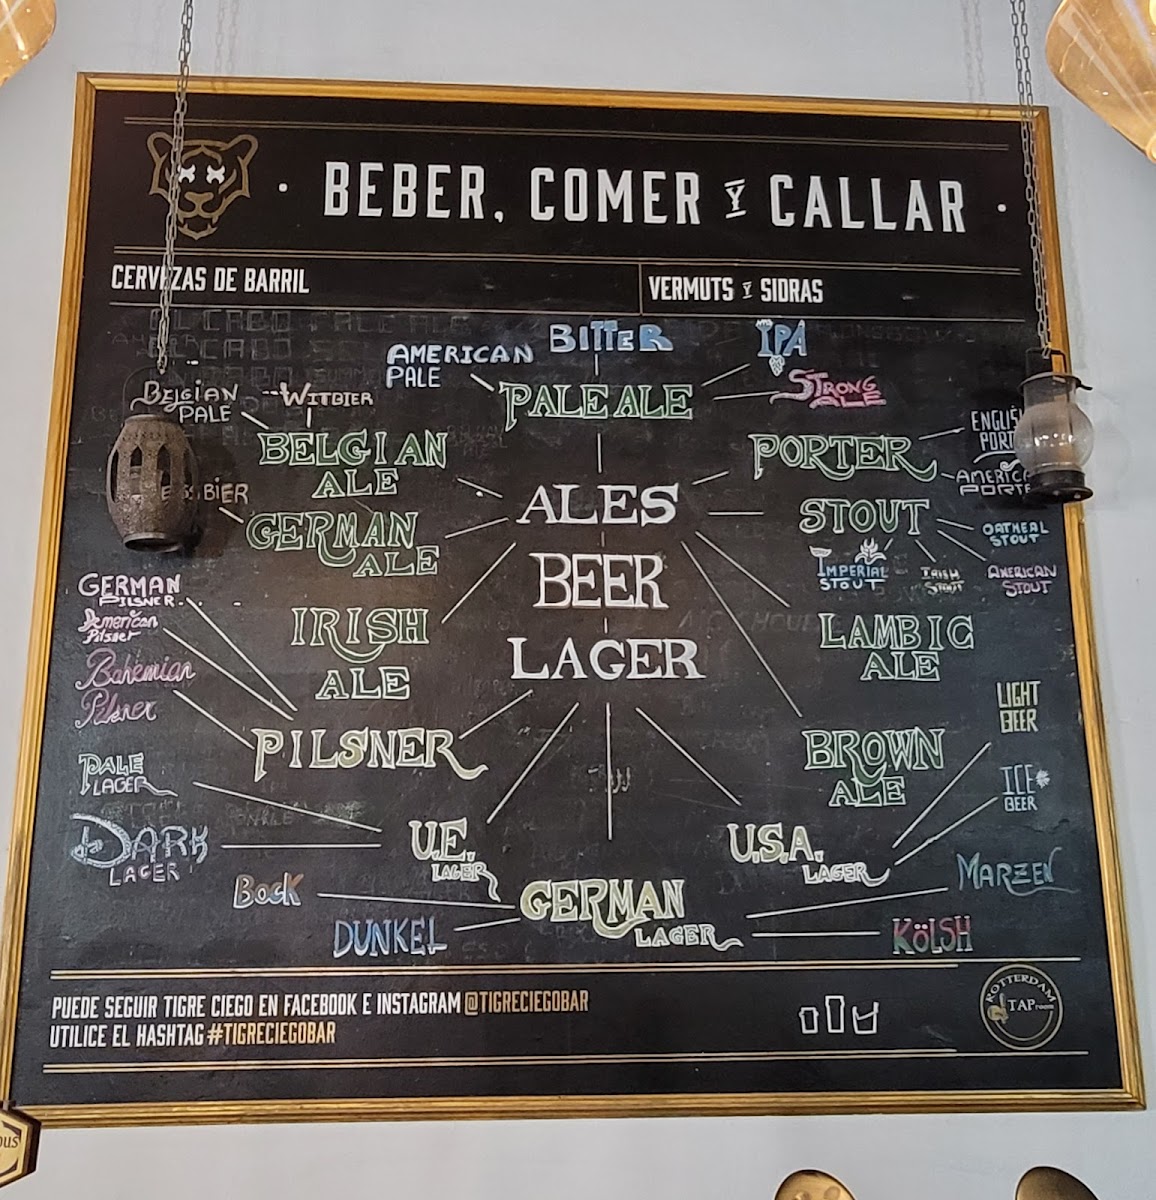 BEBER, COMER Y CALLAR
CERVEZAS DE BARRIL
VERMUTS Y SIDRAS
BITTER
IPA
AMERICAN
PALE
STRONG
ALE
PALE ALE
BElgiAN
PALE
WiTBiER
BELGIAN
ALE
PORTER
AMERICA
ALES
STOUT
OATMEAL
STOUT
BiER
GERMAN
ALE
IMPERIAL
STOUT
IRISH
STOUT
AMERICAN
STOUT
BEER
GERMAN
PILSNER.
American
Pilsner
IRISH
ALE
LAMBIC
ALE
LAGER
Bohemian
Pilsner
LIGHT
BEER
PILSNER
BROWN
ALE
PALE
LAGER
ICE
BEER
DARK
LAGER
U.E.
LAGER
U.S.A.
LAGER
MARZEN
BOCK
GERMAN
LAGER
DUNKEL
KÖLSH
PUEDE SEGUIR TIGRE CIEGO EN FACEBOOK E INSTAGRAM @TIGRECIEGOBAR
UTILICE EL HASHTAG #TIGRECIEGOBAR
ROTTERDAM
TAP room